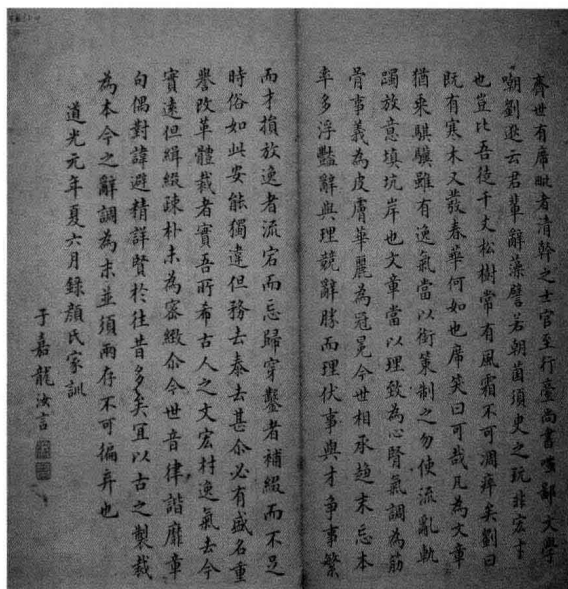 齊世有席毗者清幹之士官至行臺尚書嗤鄙文學
嘲劉逖云君輩辭藻譬若朝菌須臾之玩非宏才
也豈比吾徒千丈松樹常有風霜不可凋瘁矣劉曰
既有寒木又發春華何如也席笑曰可哉凡為文章
猶乘騏驥雖有逸氣當以銜策制之勿使流亂軌
躅放意填坑岸也文章當以理致為心腎氣調為筋
骨事義為皮膚華麗為冠冕今世相承趨末忘本
率多浮豔辭與理競辭勝而理伏事與才爭事繁
而才損放逸者流宕而忘歸穿鑿者補綴而不足
時俗如此安能獨違但務去泰去甚尒必有盛名重
譽改革體裁者實吾所希古人之文宏村逸氣去今
實遠但緝綴疎朴未為密緻尒今世音律諧靡章
句偶對諱避精詳賢於往昔多矣宜以古之製裁
為本今之辭調為末並須兩存不可偏弃也
道光元年夏六月錄顏氏家訓
于嘉龍汝言